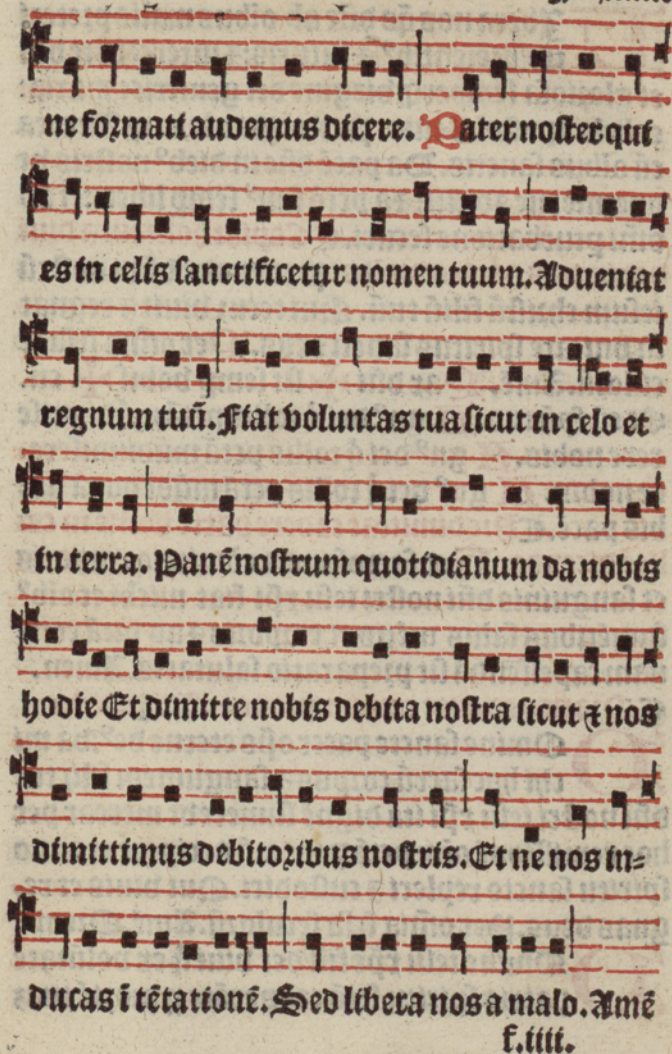 ne formati audemus dicere. Pater noster qui
es in celis sanctificetur nomen tuum. Adveniat
regnum tuū. Fiat voluntas tua sicut in celo et
in terra. Panē nostrum quotidianum da nobis
hodie Et dimitte nobis debita nostra sicut ⁊ nos
dimittimus debitoribus nostris. Et ne nos in=
ducas ī tētationē. Sed libera nos a malo. Amē
f.iiii.